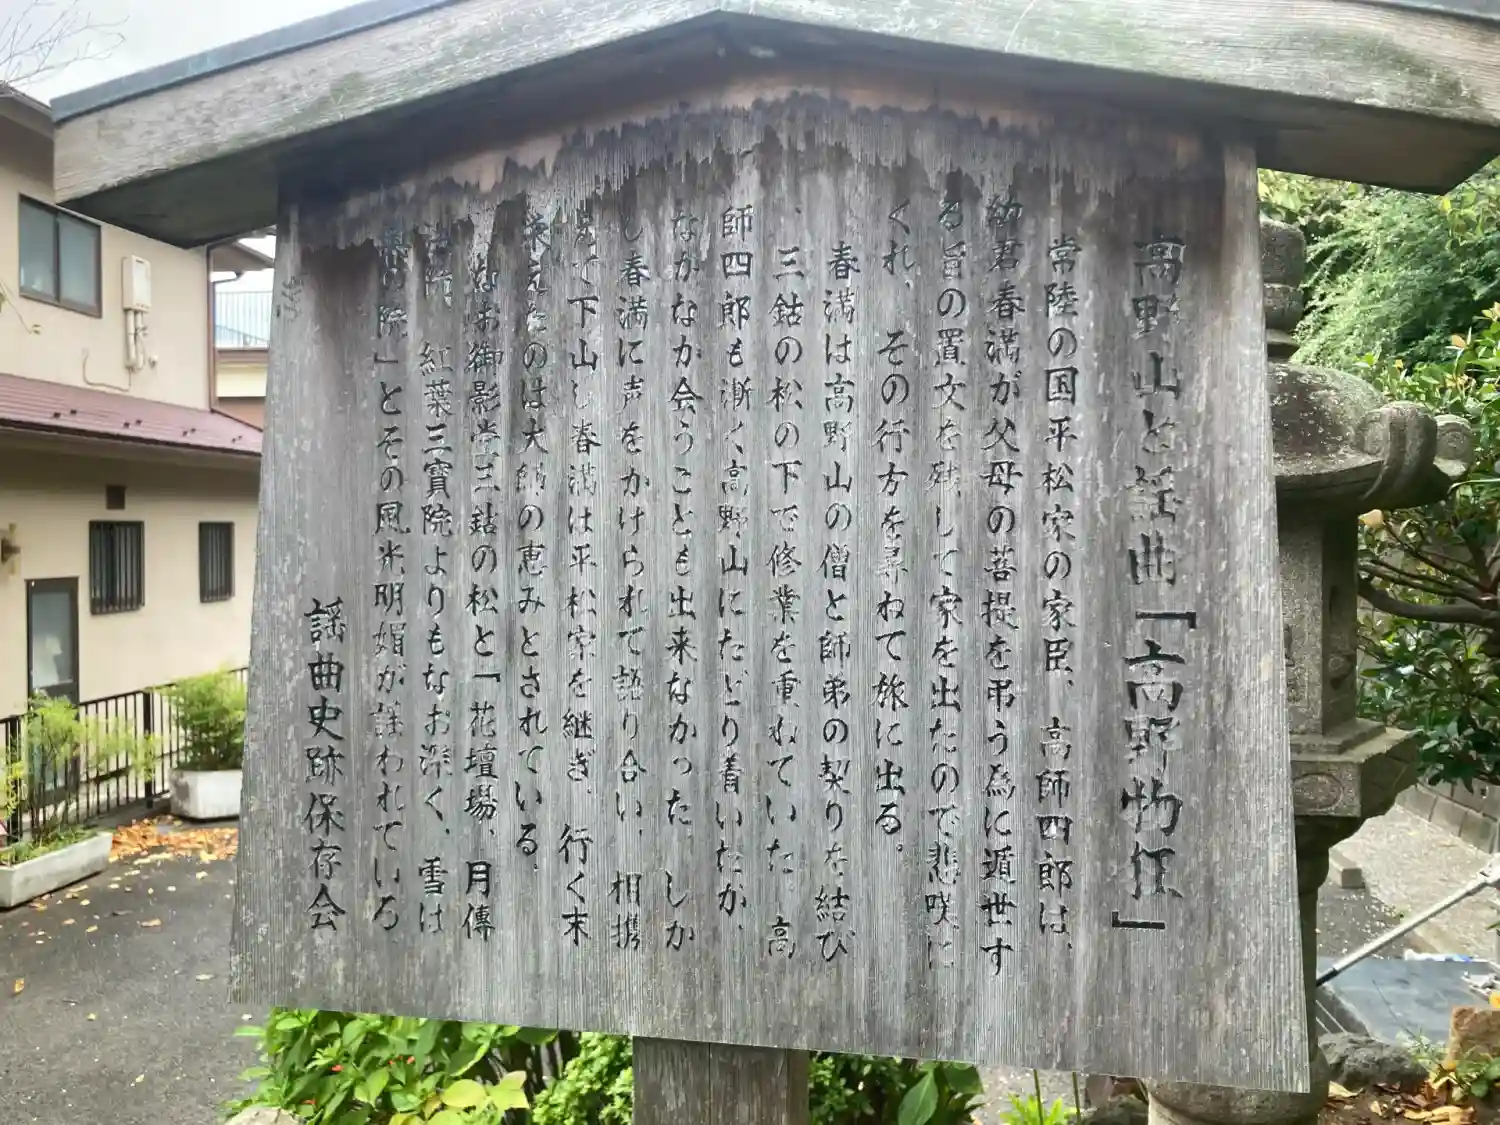 高野山と謡曲「高野物狂」
常陸の国平松家の家臣、高師四郎は、
幼君春満が父母の菩提を弔う為に遁世す
る旨の置文を残して家を出たので悲嘆に
くれ、その行方を尋ねて旅に出る。
春満は高野山の僧と師弟の契りを結び
、三鈷の松の下で修業を重ねていた。高
師四郎も漸く高野山にたどり着いたが、
なかなか会うことも出来なかった。しか
し春満に声をかけられて語り合い、相携
えて下山し春満は平松家を継ぎ、行く末
栄えたのは大師の恵みとされている。
なお御影堂三鈷の松と「花壇場、月傳
紅葉三寳院よりもなお深く、雪は
奥の院」とその風光明媚が謡われている
謡曲史跡保存会